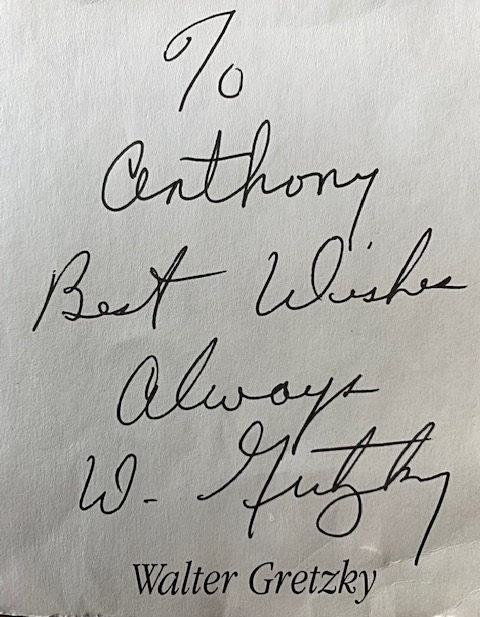 To
Anthony
Best Wishes
Always
W. Gretzky
Walter Gretzky